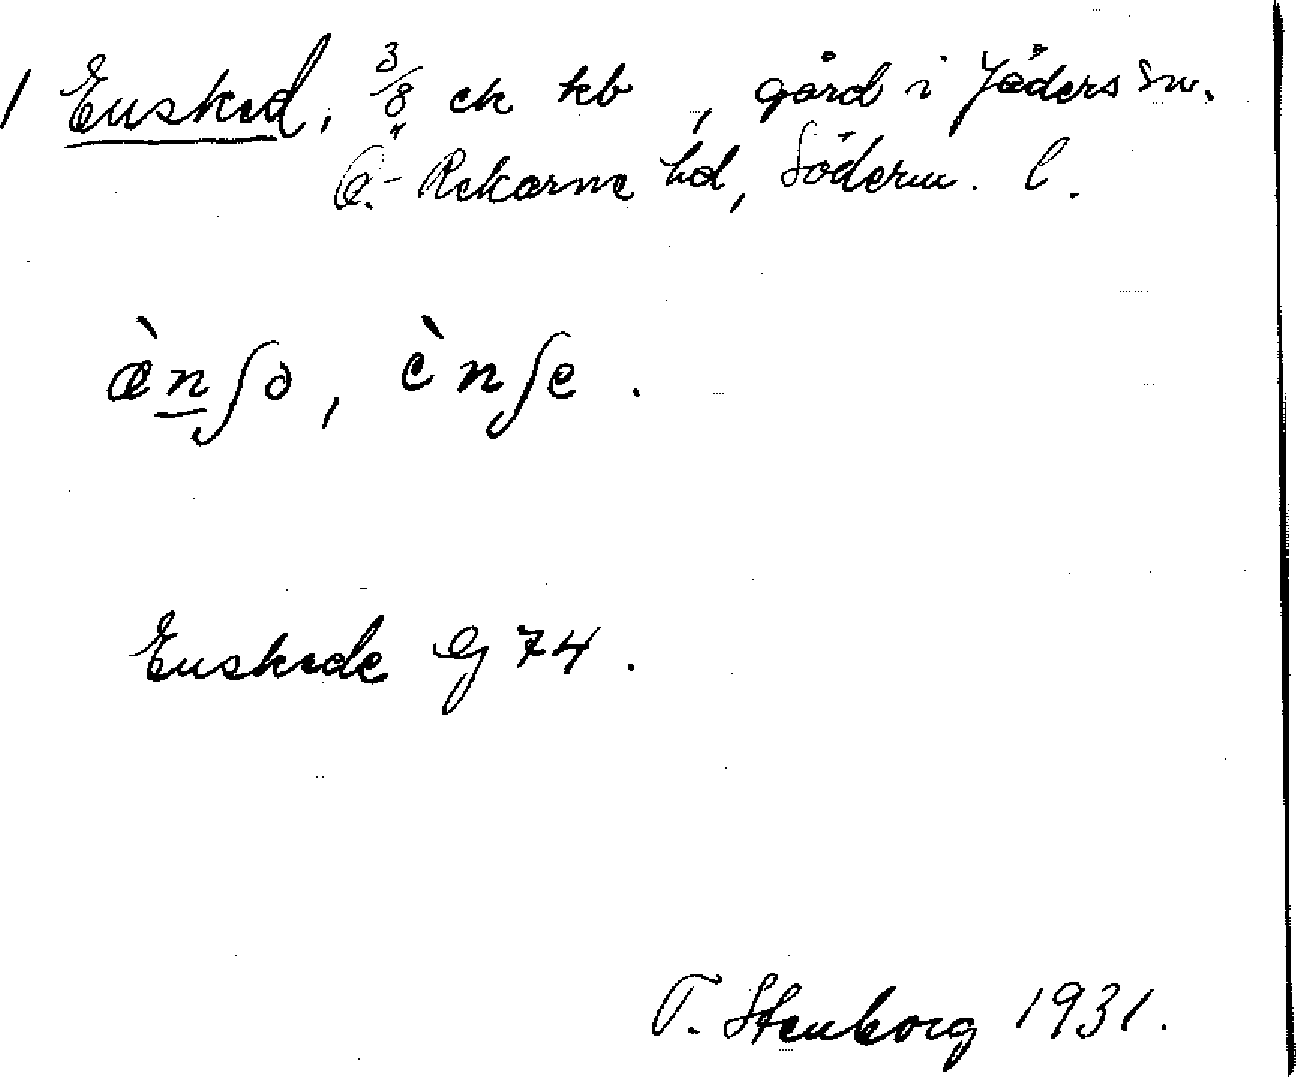 1 Ensked, 3/8 ek kb, gård i Jäders sn.
Ö.-Rekarne hd, Söderm. l.
æ̀nʃə, ènʃe.
Enskede Gj 74.
T. Stenborg 1931.